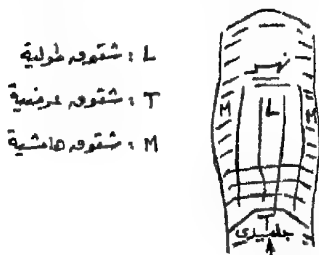 L : شقوق طولية
T : شقوق عرضية
M : شقوق هامشية
نهر
M L M
T
جليدي